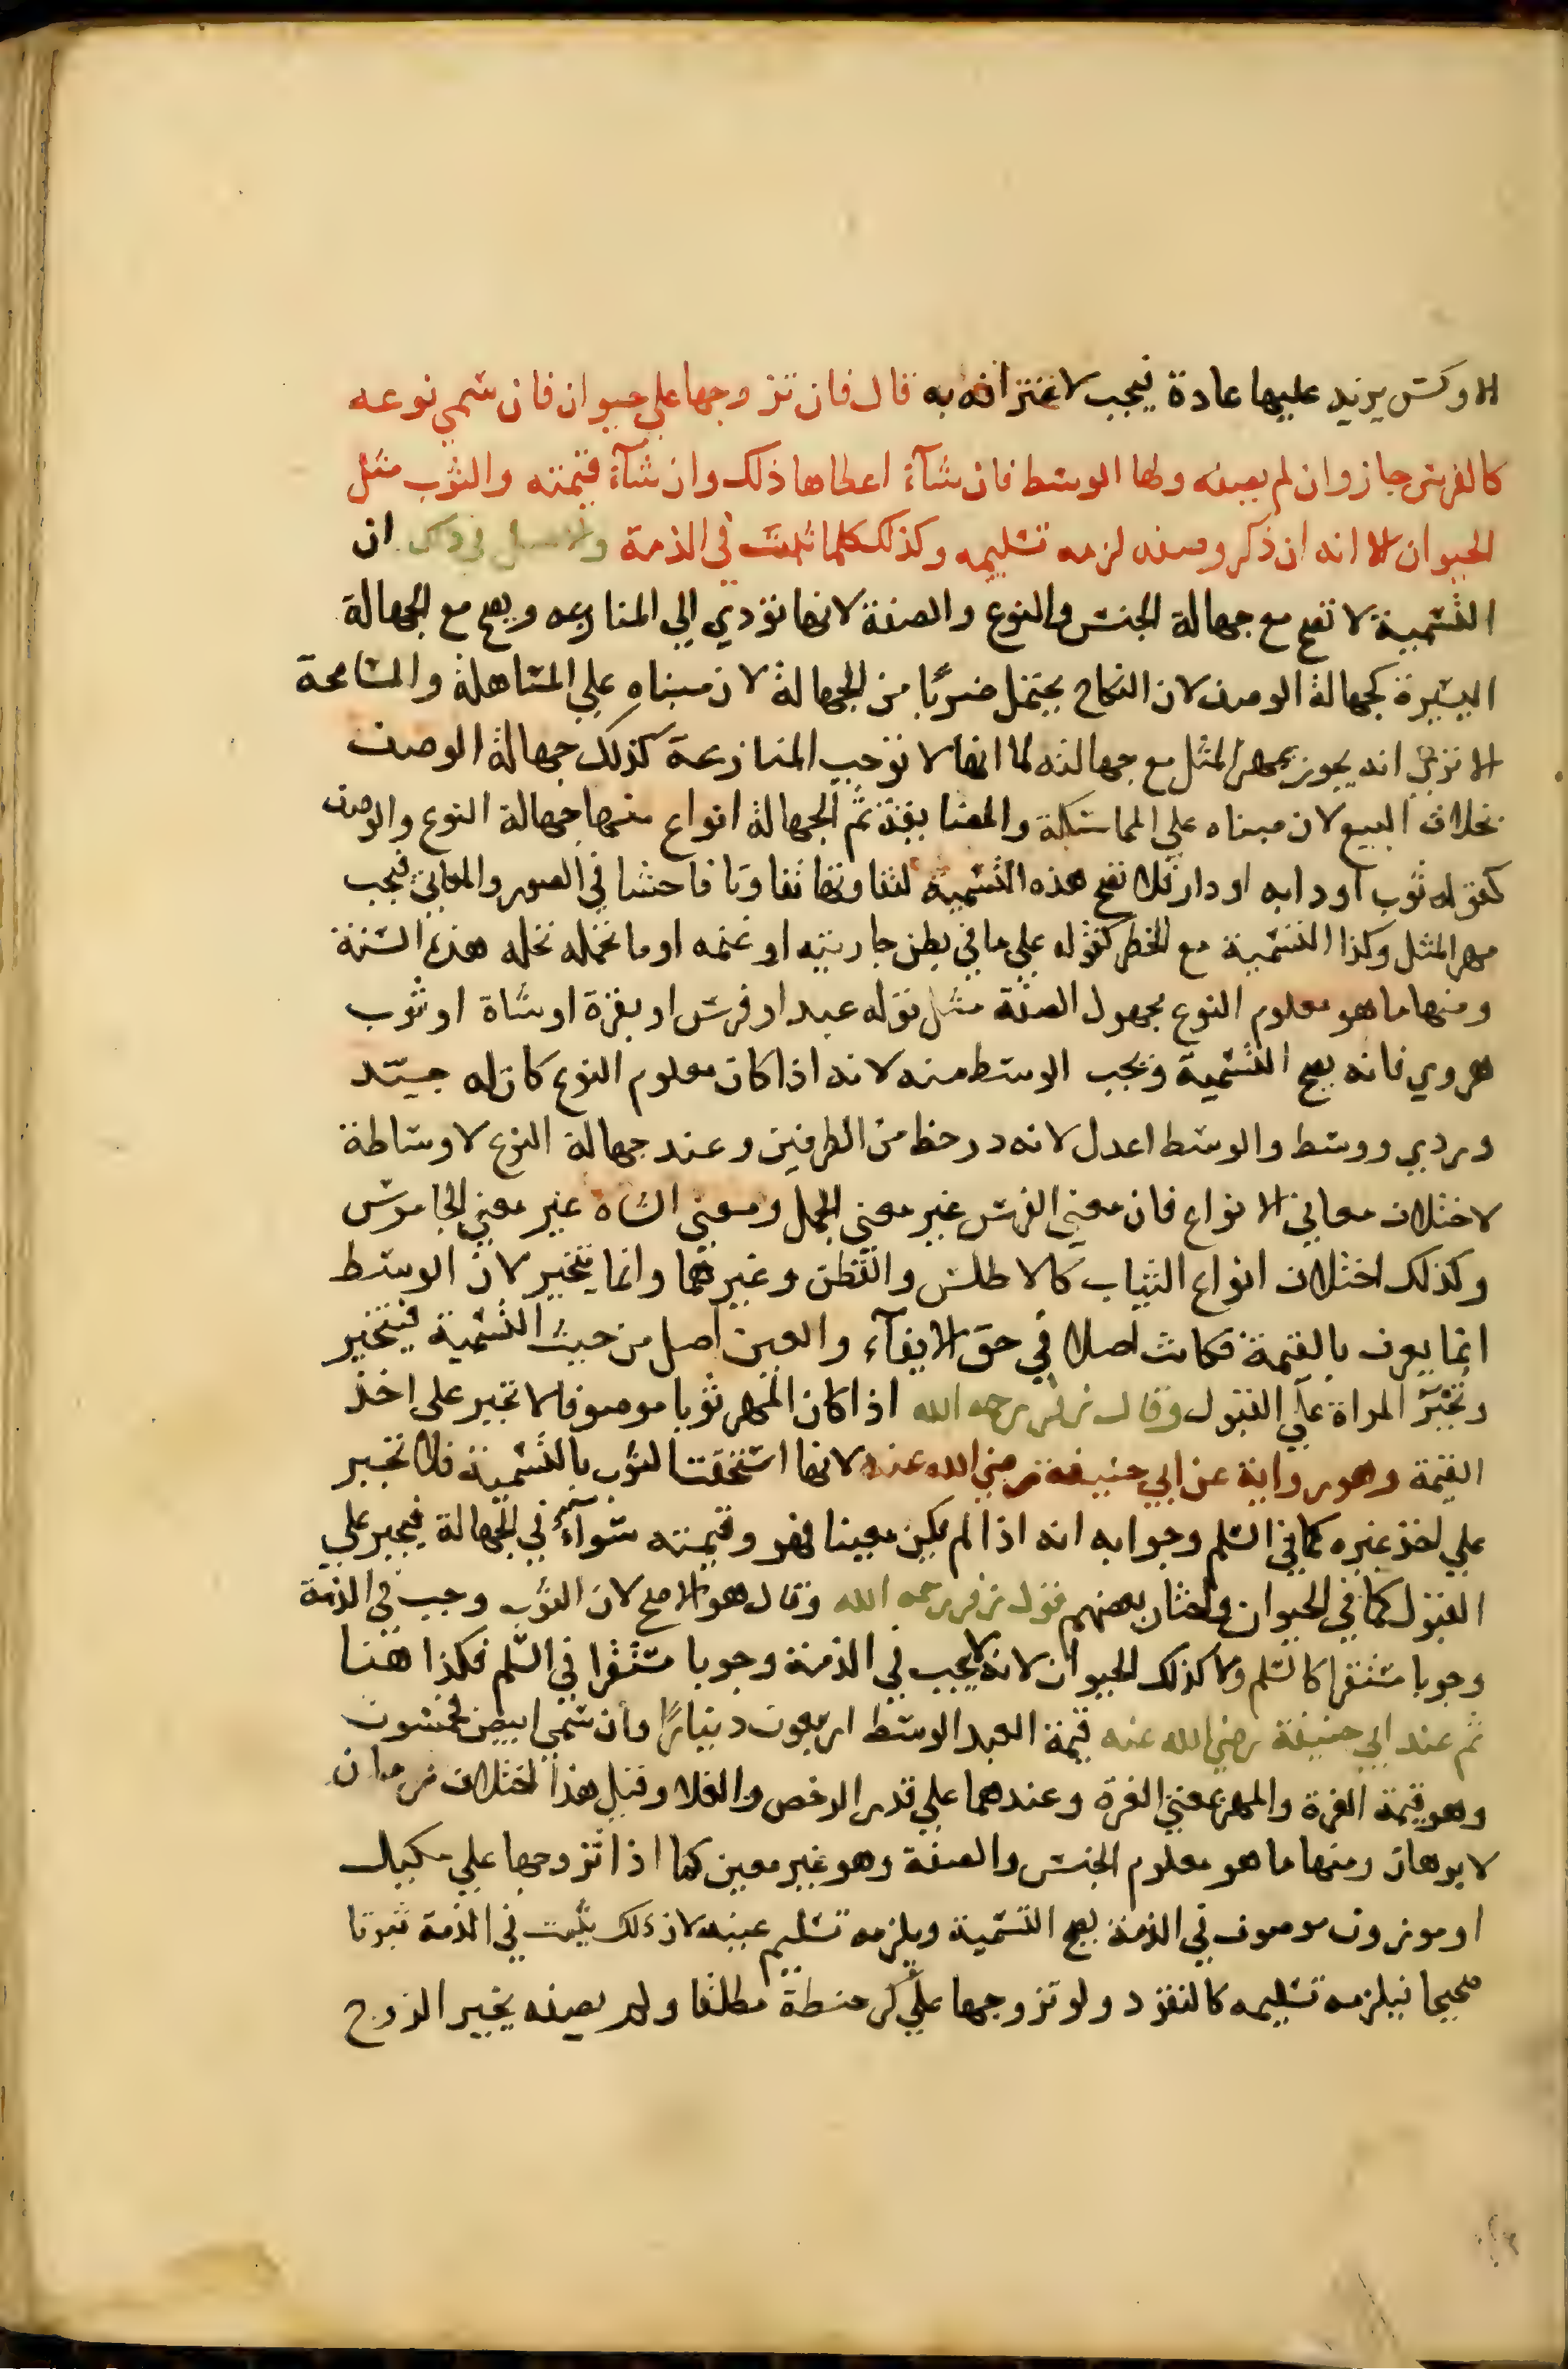 الاوكس يزيد عليها عادة فيجب لاعترافه به قال فان تزوجها على حيوان فان سمى نوعه
كالفرس جاز وان لم يصفه ولها الوسط فان شآء اعطاها ذلك وان شآء قيمته والثوب مثل
الحيوان الا انه ان ذكر وصفه لزمه تسليمه وكذلك كلما ثبت في الذمة والاصل في ذلك ان
التسمية لا تصح مع جهالة الجنس والنوع والصفة لانها تؤدي الي المنازعه ويصح مع الجهالة
اليسيرة كجهالة الوصف لان النكاح يحتمل ضربًا من الجهالة لان مبناه علي المساهلة والمسامحة
الا تري انه يجوز بمهر المثل مع جهالته لما انها لا توجب المنازعة كذلك جهالة الوصف
بخلاف البيع لان مبناه علي المماسكة والمضايقة ثم الجهالة انواع منها جهالة النوع والوصف
كقوله ثوب او دابه او دار فلا تصح هذه التسمية لتفاوتها تفاوتا فاحشا في الصور والمعاني فيجب
مهر المثل وكذا التسمية مع الخطر كقوله علي ما في بطن جاريته او غنمه او ما تحمله نخله هذه السنة
ومنها ما هو معلوم النوع مجهول الصفة مثل قوله عبد او فرس او بقرة او شاة او ثوب
هروي فانه يصح التسمية ويجب الوسط منه لانه اذا كان معلوم النوع كان له جيّد
وردي ووسط والوسط اعدل لانه در حظ من الطرفين وعند جهالة النوع لا وساطة
لاختلاف معاني الانواع فان معني الفرس غير معني الجمل ومعني الشاة غير معني الجاموس
وكذلك اختلاف انواع الثياب كالاطلس والقطن وغيرهما وانما يتخير لان الوسط
انما يعرف بالقيمة فكانت اصلا في حق الايفآء والعين اصل من حيث التسمية فيتخير
وتجبر المراة علي القبول وقال زفر رحمه الله اذا كان المهر ثوبا موصوفا لا تجبر على اخذ
القيمة وهو رواية عن ابي حنيفة رضي الله عنه لانها استحقت الثوب بالتسمية فلا تجبر
علي اخذ غيره كما في السلم وجوابه انه اذا لم يكن معينا فهو وقيمته سوآء في الجهالة فيجبر علي
القبول كما في الحيوان واختار بعضهم قول زفر رحمه الله وقال هو الاصح لان الثوب وجب في الذمة
وجوبا مستقرا كالسلم ولا كذلك الحيوان لانه لا يجب في الذمة وجوبا مستقرا في السلم فكذا هنا
ثم عند ابي حنيفة رضي الله عنه قيمة العبد الوسط اربعون دينارًا وان سمي ابيض فخمسون
وهو قيمة الغرة والمهر بمعني الغرة وعندهما علي قدر الرخص والغلا وقيل هذا اختلاف زمان
لا برهان ومنها ما هو معلوم الجنس والصفة وهو غير معين كما اذا تزوجها علي مكيل
او موزون موصوف في الذمة يصح التسمية ويلزمه تسليم عينه لان ذلك يثبت في الذمة ثبوتا
صحيحا فيلزمه تسليمه كالنقود ولو تزوجها علي كر حنطة مطلقا ولم يصفه يخير الزوج